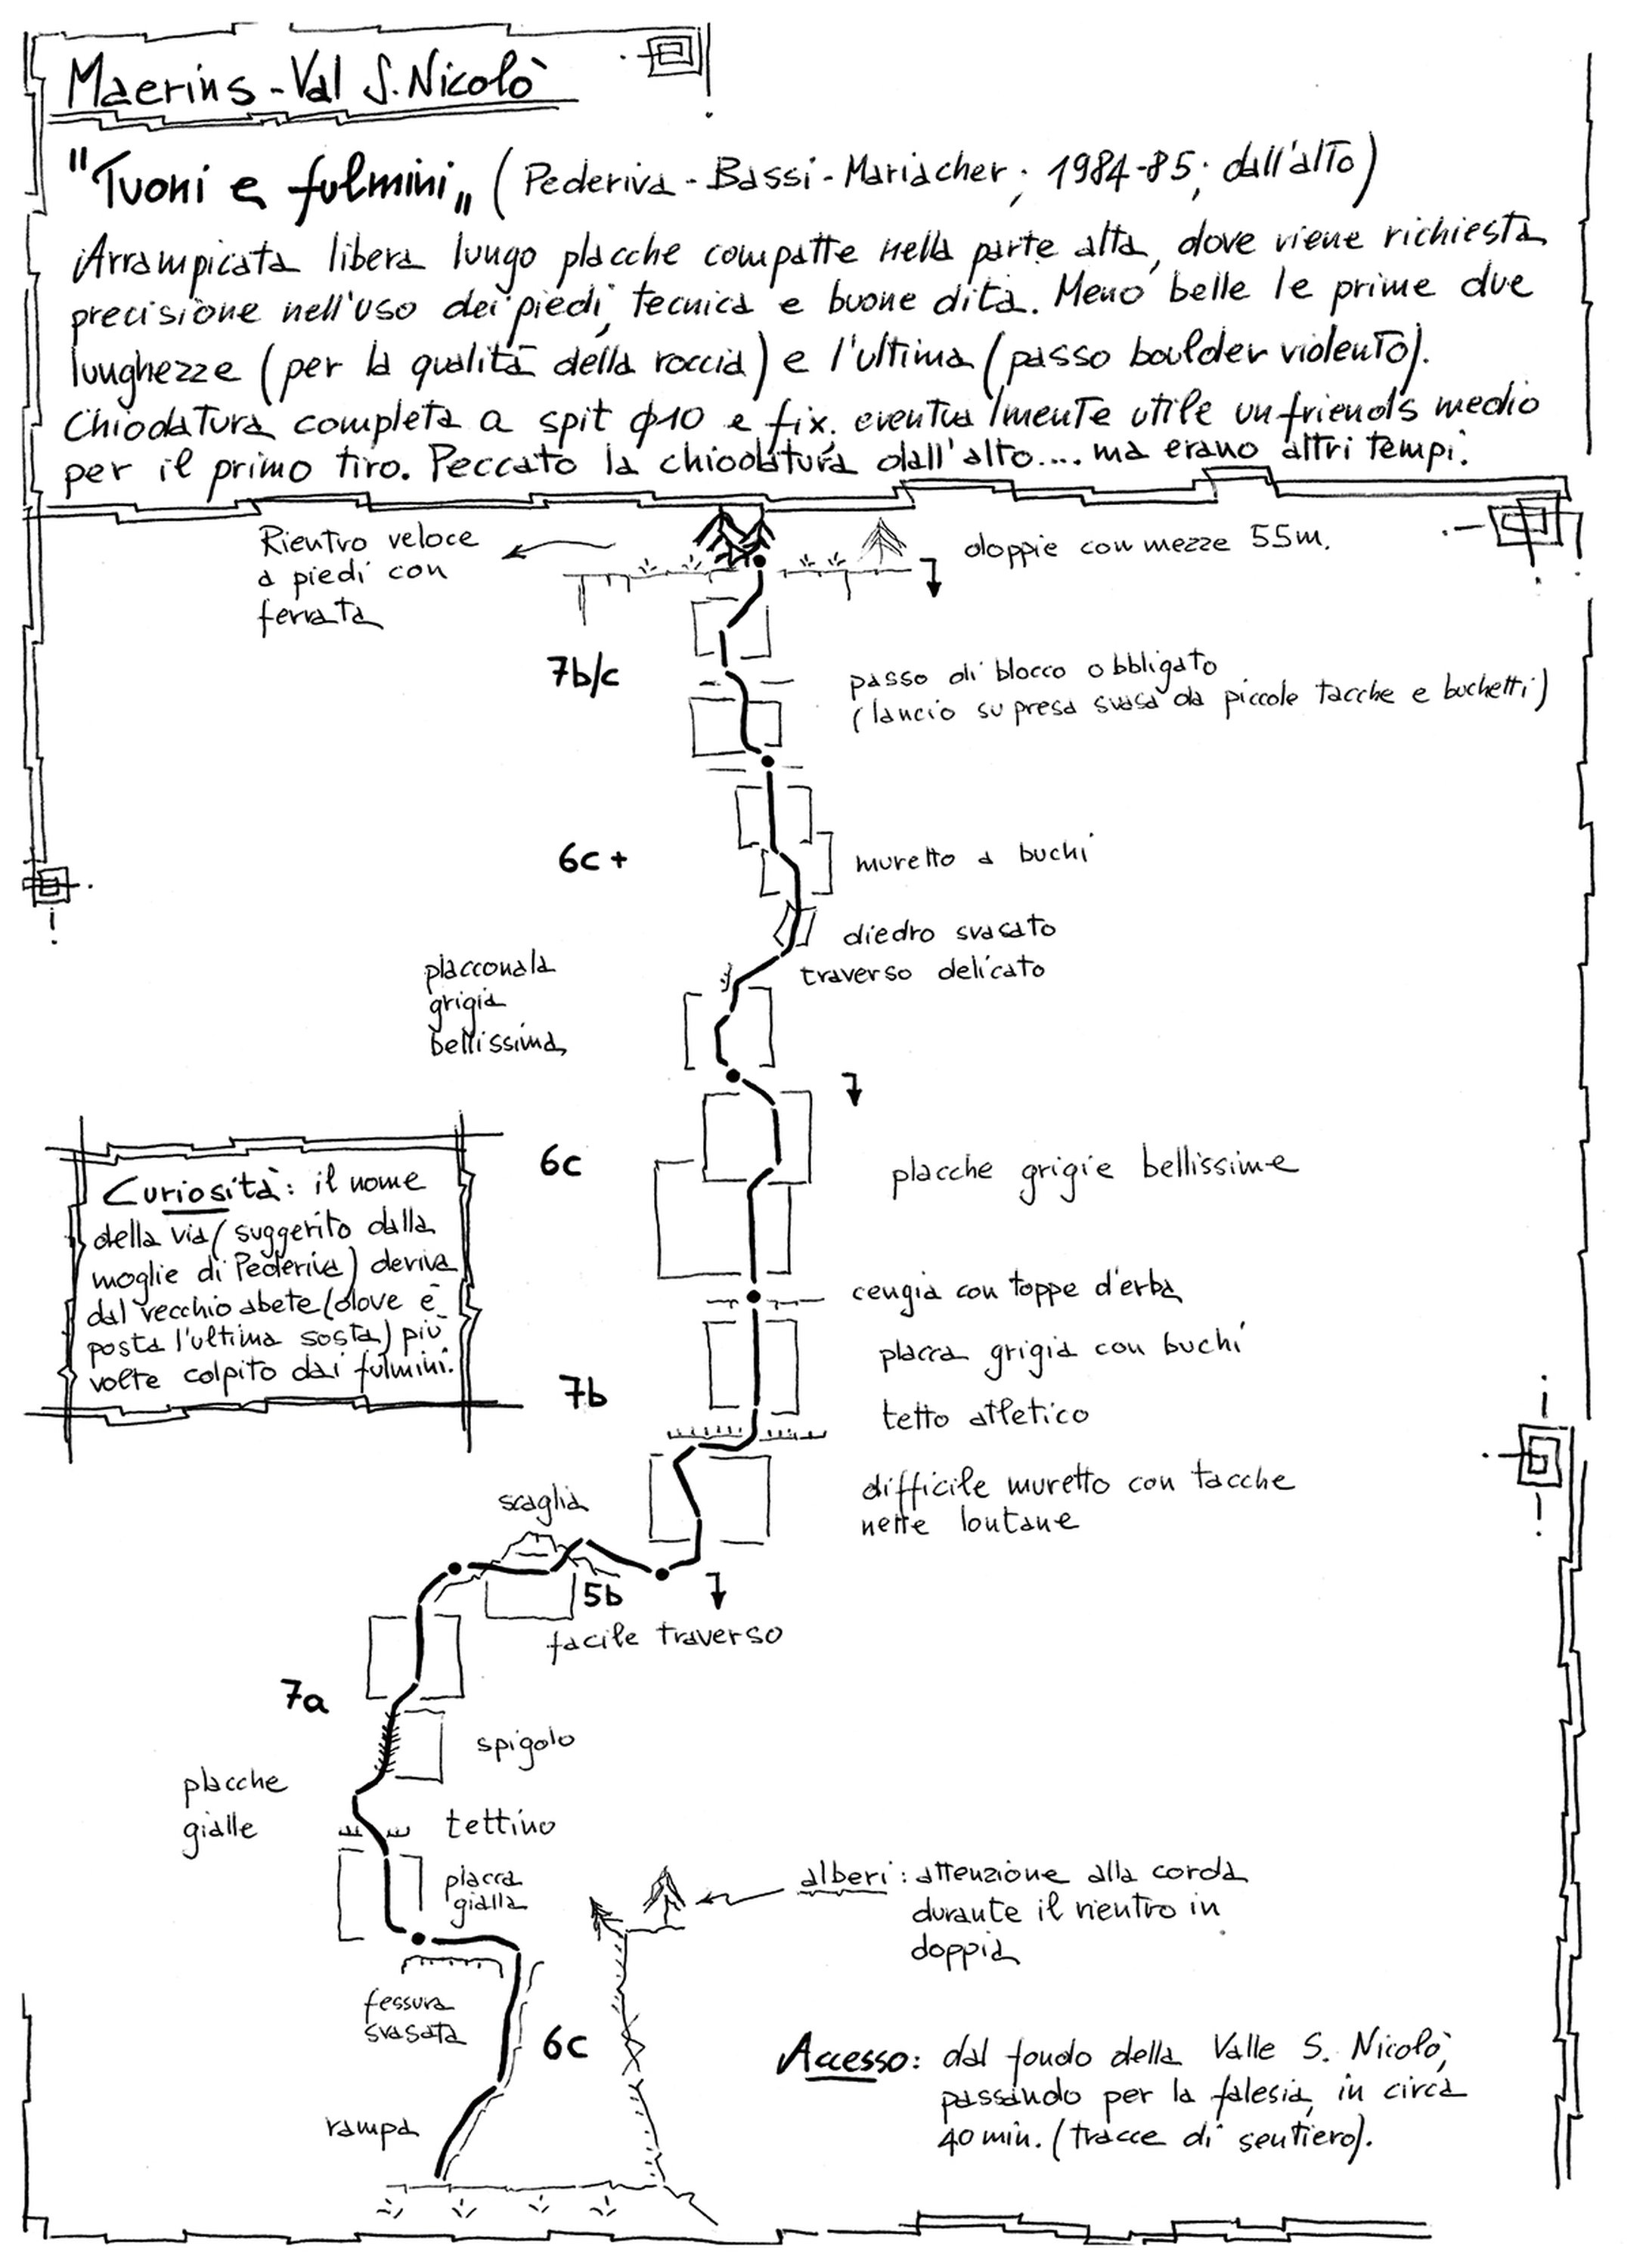 Maerins - Val S. Nicolò
"Tuoni e fulmini" (Pederiva - Bassi - Mariacher; 1984-85; dall'alto)
Arrampicata libera lungo placche compatte nella parte alta, dove viene richiesta
precisione nell'uso dei piedi, tecnica e buone dita. Meno belle le prime due
lunghezze (per la qualità della roccia) e l'ultima (passo boulder violento).
Chiodatura completa a spit φ10 e fix. eventualmente utile un friends medio
per il primo tiro. Peccato la chiodatura dall'alto.... ma erano altri tempi.
Rientro veloce
a piedi con
ferrata
doppie con mezze 55m.
7b/c
passo di blocco obbligato
(lancio su presa svasa da piccole tacche e buchetti)
6c+
muretto a buchi
diedro svasato
traverso delicato
placconata
grigia
bellissima
6c
placche grigie bellissime
Curiosità: il nome
della via (suggerito dalla
moglie di Pederiva) deriva
dal vecchio abete (dove è
posta l'ultima sosta) più
volte colpito dai fulmini.
cengia con toppe d'erba
placca grigia con buchi
7b
tetto atletico
difficile muretto con tacche
nette lontane
scaglia
5b
facile traverso
7a
spigolo
placche
gialle
tettino
placca
gialla
alberi: attenzione alla corda
durante il rientro in
doppia
fessura
svasata
6c
rampa
Accesso: dal fondo della Valle S. Nicolò,
passando per la falesia, in circa
40 min. (tracce di sentiero).